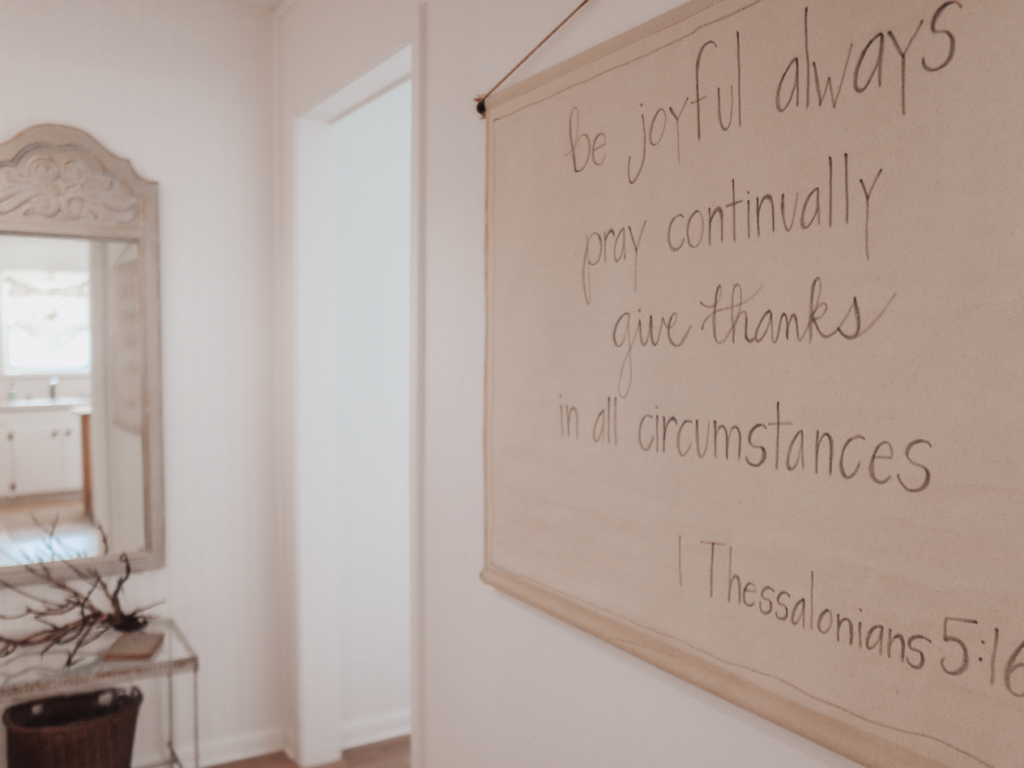 be joyful always
pray continually
give thanks
in all circumstances
1 Thessalonians 5:16